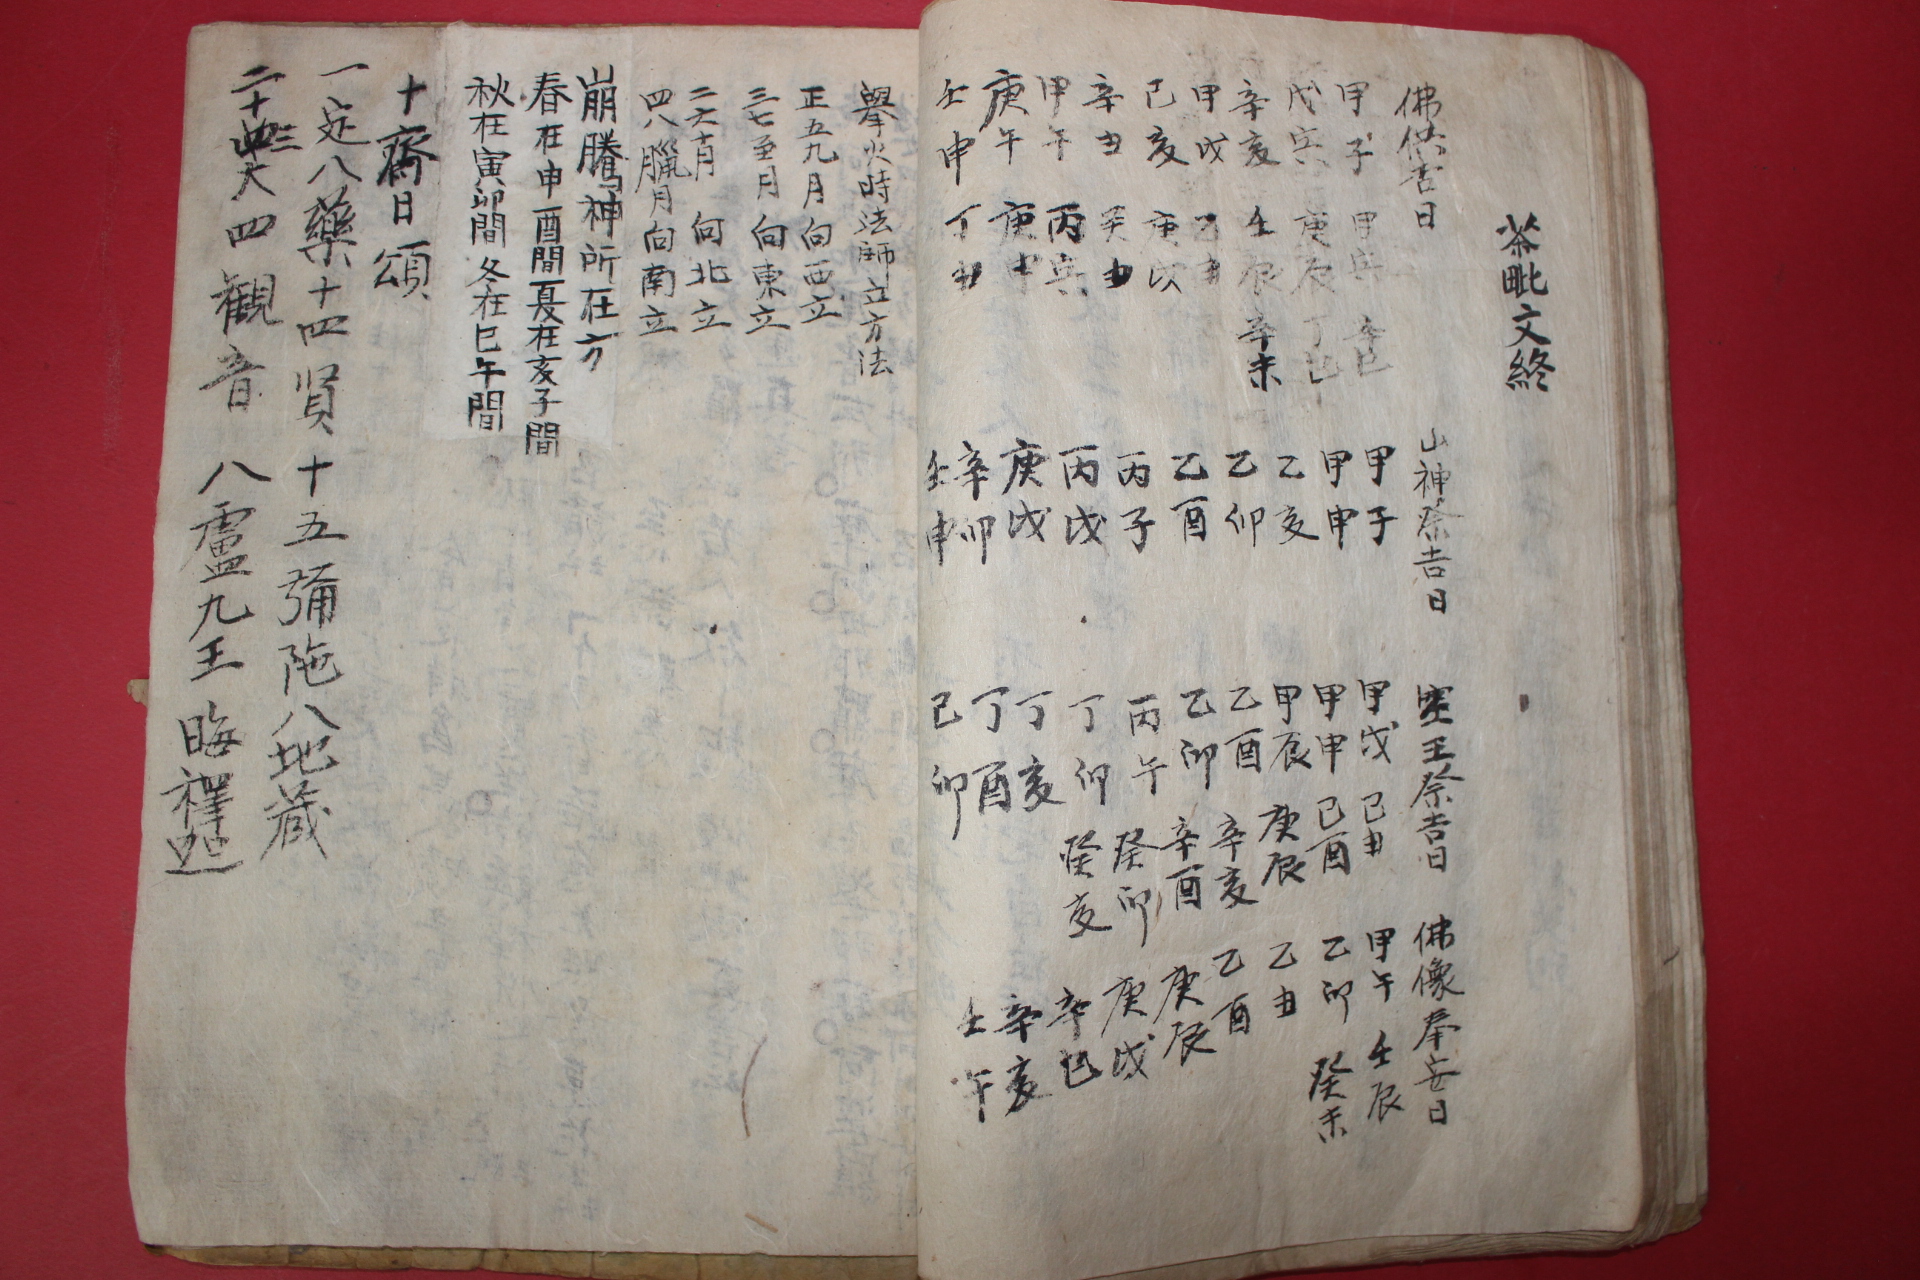 茶毗文終
佛供吉日
甲子 甲寅 辛巳
戊寅 庚辰 丁巳
辛亥 壬辰 辛未
甲戌 乙丑
己亥 庚戌
辛丑 癸丑
甲午 丙寅
庚午 庚申
壬申 丁丑
山神祭吉日
甲子
甲申
乙亥
乙卯
乙酉
丙子
丙戌
庚戌
辛卯
壬申
竈王祭吉日
甲戌 己丑
甲申 己酉
甲辰 庚辰
乙酉 辛亥
乙卯 辛酉
丙午 癸卯
丁卯 癸亥
丁亥
丁酉
己卯
佛像奉安日
甲午 壬辰
乙卯 癸未
乙丑
乙酉
庚辰
庚戌
辛巳
辛亥
壬午
擧火時法師立方法
正五九月向西立
三七至月向東立
二六十月 向北立
四八臘月向南立
崩騰神所在方
春在申酉間夏在亥子間
秋在寅卯間 冬在巳午間
十齋日頌
一定八藥十四賢 十五彌陀八地藏
二十三大四觀音 八盧九王晦釋迦